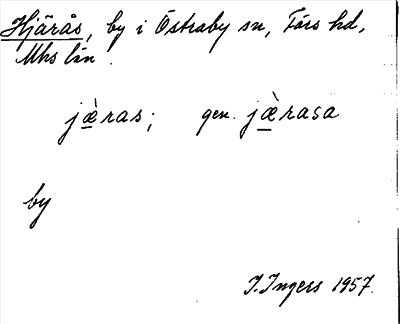 Hjärås, by i Östraby sn, Färs hd,
Mhs län.
jæ̀ras; gen. jæ̀rasa
by
I. Ingers 1957.